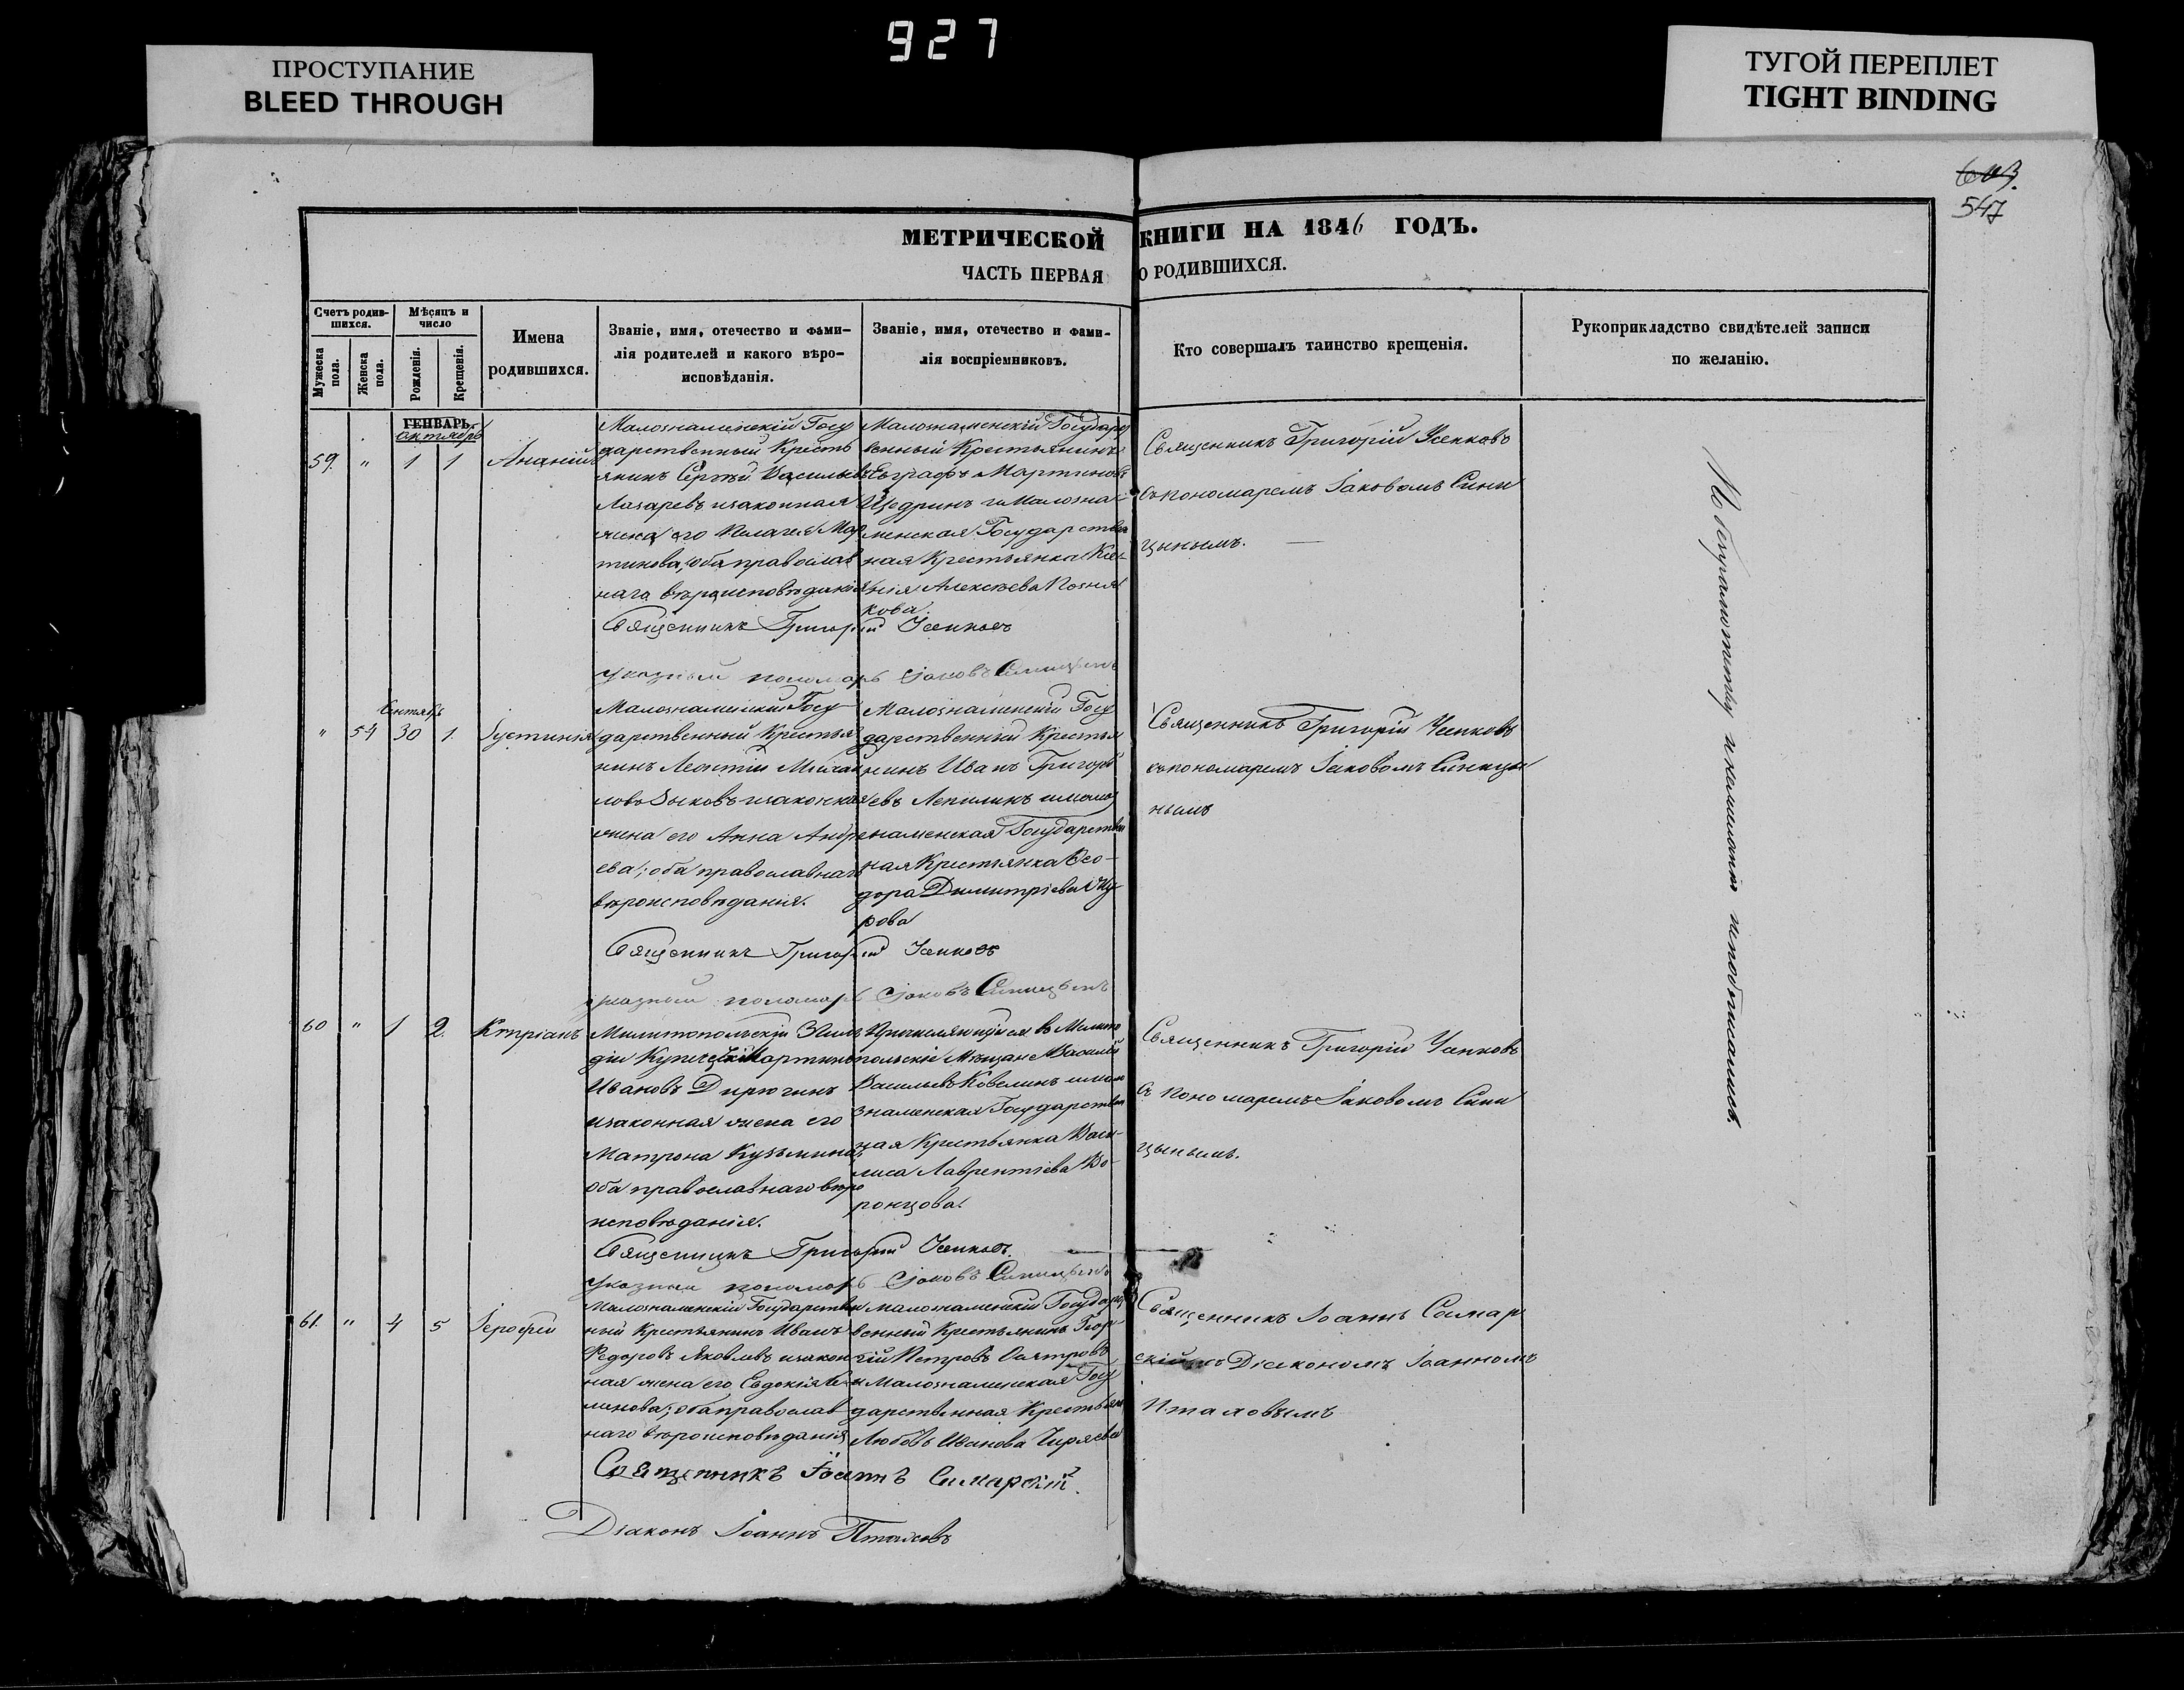 927
ПРОСТУПАНИЕ
BLEED THROUGH
ТУГОЙ ПЕРЕПЛЕТ
TIGHT BINDING
603.
547
МЕТРИЧЕСКОЙ КНИГИ НА 1846 ГОДЪ.
ЧАСТЬ ПЕРВАЯ О РОДИВШИХСЯ.
Счетъ родив-
шихся.
Мужеска
пола.
Женска
пола.
Мѣсяцъ и
число
Рожденія.
Крещенія.
Имена
родившихся.
Званіе, имя, отечество и фами-
лія родителей и какого вѣро-
исповѣданія.
Званіе, имя, отечество и фами-
лія воспріемниковъ.
Кто совершалъ таинство крещенія.
Рукоприкладство свидѣтелей записи
по желанію.
ГЕНВАРЬ.
октябрь
59. " 1 1 Ананій
Малознаменскій Госу
дарственный Кресть
янинъ Сергѣй Васильевъ
Лазаревъ изаконная
жена его Пелагея Мар
тинова, оба православ
наго вѣроисповѣданія
Малознаменскій Государст
венный Крестьянинъ
Евграфъ Мартиновъ
Щедринъ и Малозна-
менская Государствен
ная Крестьянка Ксе-
нія Алексѣева Позня
кова.
Священникъ Григорій Усенковъ
съ пономаремъ Іаковомъ Сини
цынымъ.
Священникъ Григорій Усенковъ
указный пономарь Іаковъ Синицынъ
Сентябрь
" 54 30 1. Іустинія
Малознаменскій Госу
дарственный Крестья
нинъ Леонтій Михай
ловъ Зыковъ изаконная
жена его Анна Андре
ева; оба православнаго
вѣроисповѣданія.
Малознаменскій Госу
дарственный Крестья
нинъ Иванъ Григорь
евъ Лепилинъ и малоз
наменская Государствен
ная Крестьянка Ѳео-
дора Димитріева
рова
Священникъ Григорій Усенковъ
съ пономаремъ Іаковомъ Синицы
нымъ
Священникъ Григорій Усенковъ
указный пономарь Іаковъ Синицынъ
60 " 1 2. Кипріанъ
Милитопольскій 3 Гиль
діи Купецъ Мартинъ
Ивановъ Дирюгинъ
изаконная жена его
Матрона Кузьмина
оба православнаго вѣро
исповѣданія.
Причисляющійся въ Мелито
польскіе Мѣщане Василій
Васильевъ Ковелинъ и мало
знаменская Государствен
ная Крестьянка Васи-
лиса Лаврентіева Во-
ронцова.
Священникъ Григорій Усенковъ
съ пономаремъ Іаковомъ Сини
цынымъ.
Священникъ Григорій Усенковъ.
указный пономарь Іаковъ Синицынъ
61. " 4 5 Іерофей
Малознаменскій Государствен
ный Крестьянинъ Иванъ
Федоровъ Яковлевъ изакон
ная жена его Евдокія
минова; оба православ
наго вѣроисповѣданія
малознаменскій Государст
венный Крестьянинъ Геор
гій Петровъ
и Малознаменская Госу
дарственная Крестьян
Любовь Иванова Чиряева
Священникъ Іоаннъ Самар
скій съ Діакономъ Іоанномъ
Пталовымъ
Священникъ Іоаннъ Самарскій.
Діаконъ Іоаннъ Пталовъ